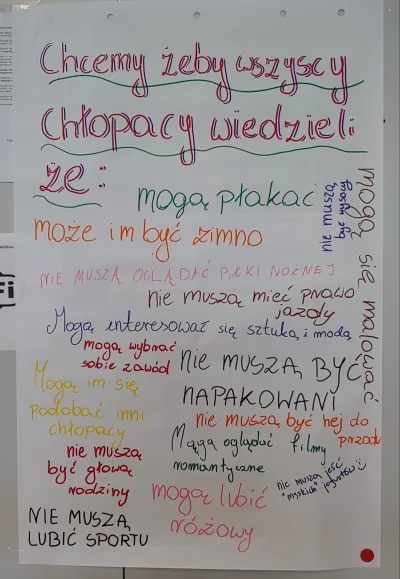 Chcemy żeby wszyscy
chłopacy wiedzieli
że:
mogą płakać
nie muszą
być wysocy
mogą się malować
może im być zimno
NIE MUSZĄ OGLĄDAĆ PIŁKI NOŻNEJ
nie muszą mieć prawo
jazdy
Mogą interesować się sztuką i modą
mogą wybrać
sobie zawód
nie MUSZĄ BYĆ
NAPAKOWANI
Mogą im się
podobać inni
chłopacy
nie muszą być hej do
przodu
Mogą oglądać filmy
romantyczne
nie muszą
być głową
rodziny
nie muszą jeść
"męskich" jogurtów :)
mogą lubić
różowy
NIE MUSZĄ
LUBIĆ SPORTU
Fi